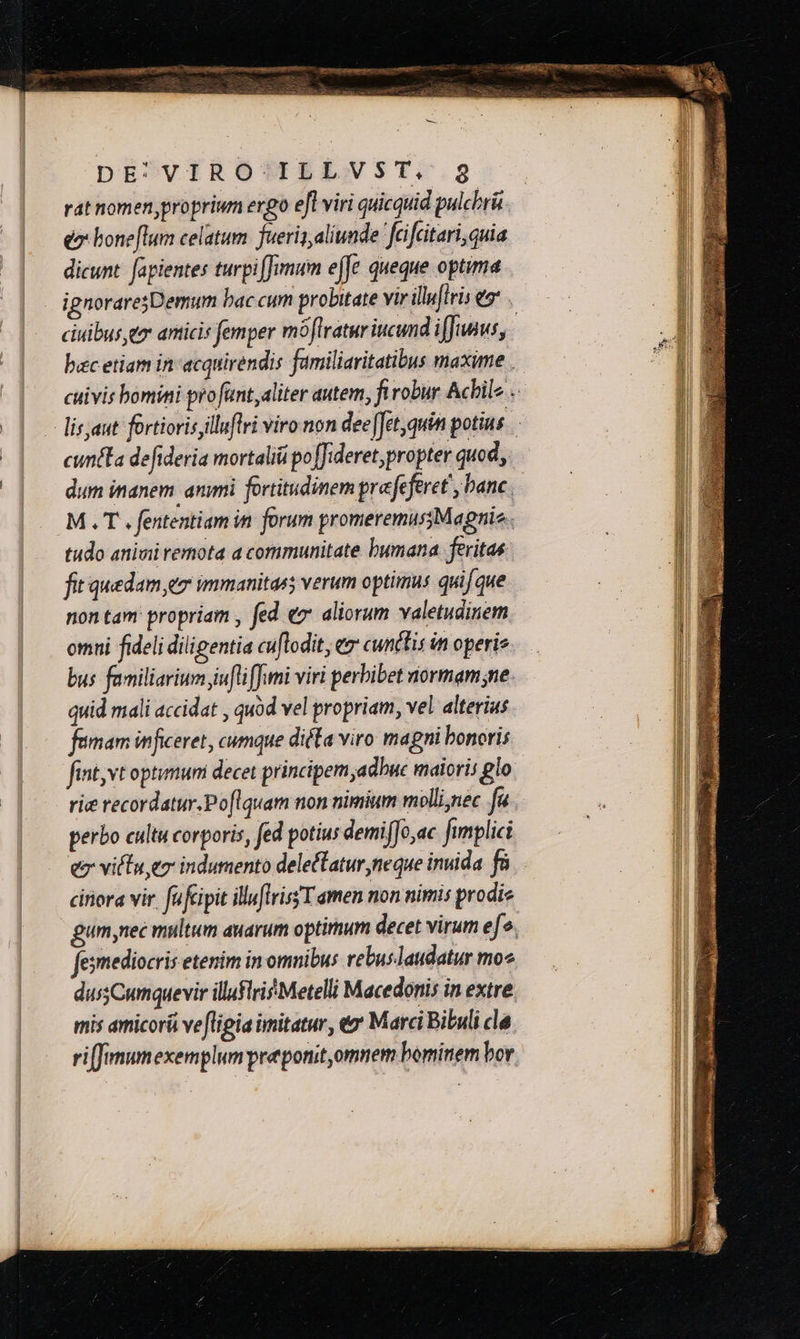 DE VIRO ILLVST. 8
rat nomen,proprium ergo eſt viri quicquid pulchrũ
& honeſtum celatum fuerit,aliunde ſciſcitari,quia
dicunt ſapientes turpiſſimum eſſe queque optima
ignorare;Demum hac cum probitate vir illuſtris &
ciuibus,& amicis ſemper mõſtratur iucundiſſimus,
hæc etiam in acquirendis familiaritatibus maxime
cuivis homini proſunt,aliter autem, ſi robur Achil⸗
lis,aut fortioris,illuſtri viro non deeſſet,quin potius
cuncta deſideria mortaliũ poſſideret,propter quod,
dum inanem animi fortitudinem præſeferet, hanc
M.T. ſententiam in forum promeremus;Magni⸗
tudo animi remota a communitate humana feritas
fit quædam,& immanitas; verum optimus quiſque
non tam propriam, ſed & aliorum valetudinem
omni fideli diligentia cuſtodit, & cunctis in operi⸗
bus familiarium,iuſtiſſimi viri perhibet normam,ne
quid mali accidat, quòd vel propriam, vel alterius
famam inficeret, cumque dicta viro magni honoris
ſint,vt optimum decet principem,adhuc maioris glo
riæ recordatur.Poſtquam non nimium molli,nec ſu
perbo cultu corporis, ſed potius demiſſo,ac ſimplici
& victu,& indumento delectatur,neque inuida fa
cinora vir ſuſcipit illuſtris;Tamen non nimis prodi⸗
gum,nec multum auarum optimum decet virum eſ⸗
ſe;mediocris etenim in omnibus rebus laudatur mo⸗
dus;Cumquevir illuſtris Metelli Macedonis in extre
mis amicorũ veſtigia imitatur, & Marci Bibuli cla
riſſimum exemplum præponit,omnem hominem hor